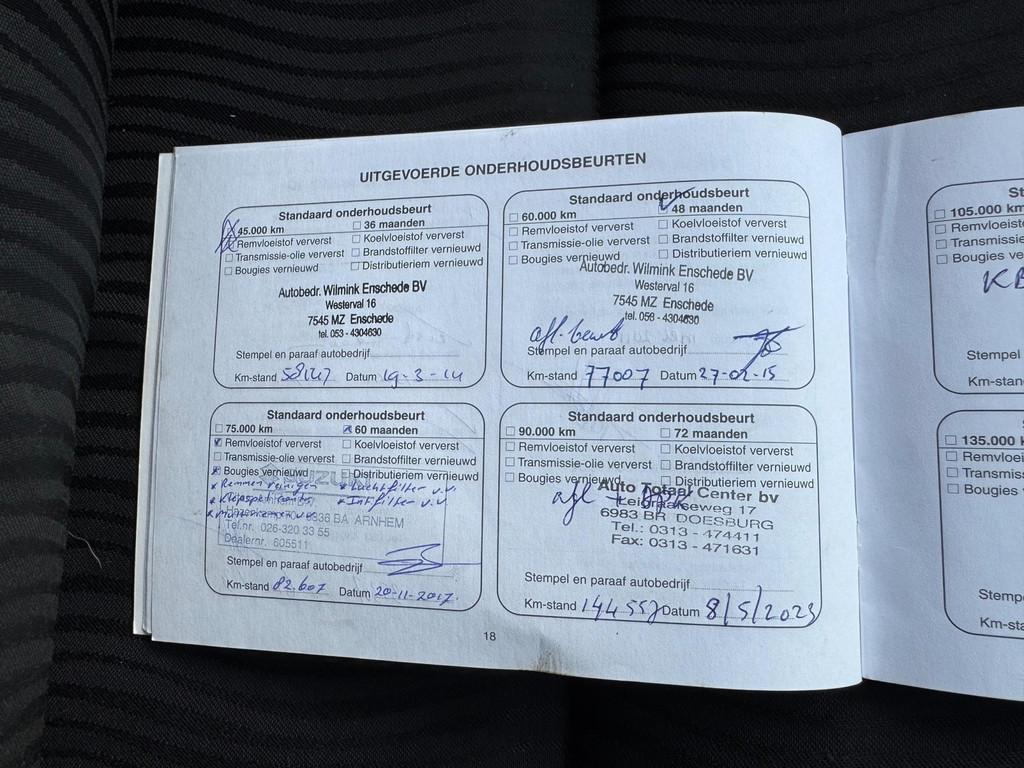 UITGEVOERDE ONDERHOUDSBEURTEN
Standaard onderhoudsbeurt
45.000 km 36 maanden
Remvloeistof ververst Koelvloeistof ververst
Transmissie-olie ververst Brandstoffilter vernieuwd
Bougies vernieuwd Distributieriem vernieuwd
Autobedr. Wilmink Enschede BV
Westerval 16
7545 MZ Enschede
tel. 053 - 4304630
Stempel en paraaf autobedrijf
Km-stand 58147 Datum 19-3-14
Standaard onderhoudsbeurt
60.000 km 48 maanden
Remvloeistof ververst Koelvloeistof ververst
Transmissie-olie ververst Brandstoffilter vernieuwd
Bougies vernieuwd Distributieriem vernieuwd
Autobedr. Wilmink Enschede BV
Westerval 16
7545 MZ Enschede
tel. 053 - 4304630
afl. beurt
Stempel en paraaf autobedrijf
Km-stand 77007 Datum 27-02-15
Standaard onderhoudsbeurt
75.000 km 60 maanden
Remvloeistof ververst Koelvloeistof ververst
Transmissie-olie ververst Brandstoffilter vernieuwd
Bougies vernieuwd Distributieriem vernieuwd
* Remmen reinigen * Luchtfilter v.v.
* Int. filter v.v
6836 BA ARNHEM
Tel.nr. 026-320 33 55
Dealernr. 605511
Stempel en paraaf autobedrijf
Km-stand 82.607 Datum 20-11-2017
Standaard onderhoudsbeurt
90.000 km 72 maanden
Remvloeistof ververst Koelvloeistof ververst
Transmissie-olie ververst Brandstoffilter vernieuwd
Bougies vernieuwd Distributieriem vernieuwd
Auto Totaal Center bv
afl +
Leigraafseweg 17
6983 BR DOESBURG
Tel.: 0313 - 474411
Fax: 0313 - 471631
Stempel en paraaf autobedrijf
Km-stand 144557 Datum 8/5/2023
18
St
105.000 km
Remvloeist
Transmissie
Bougies ve
KB
Stempel
Km-stand
135.000 k
Remvloei
Transmiss
Bougies
Stemp
Km-sta